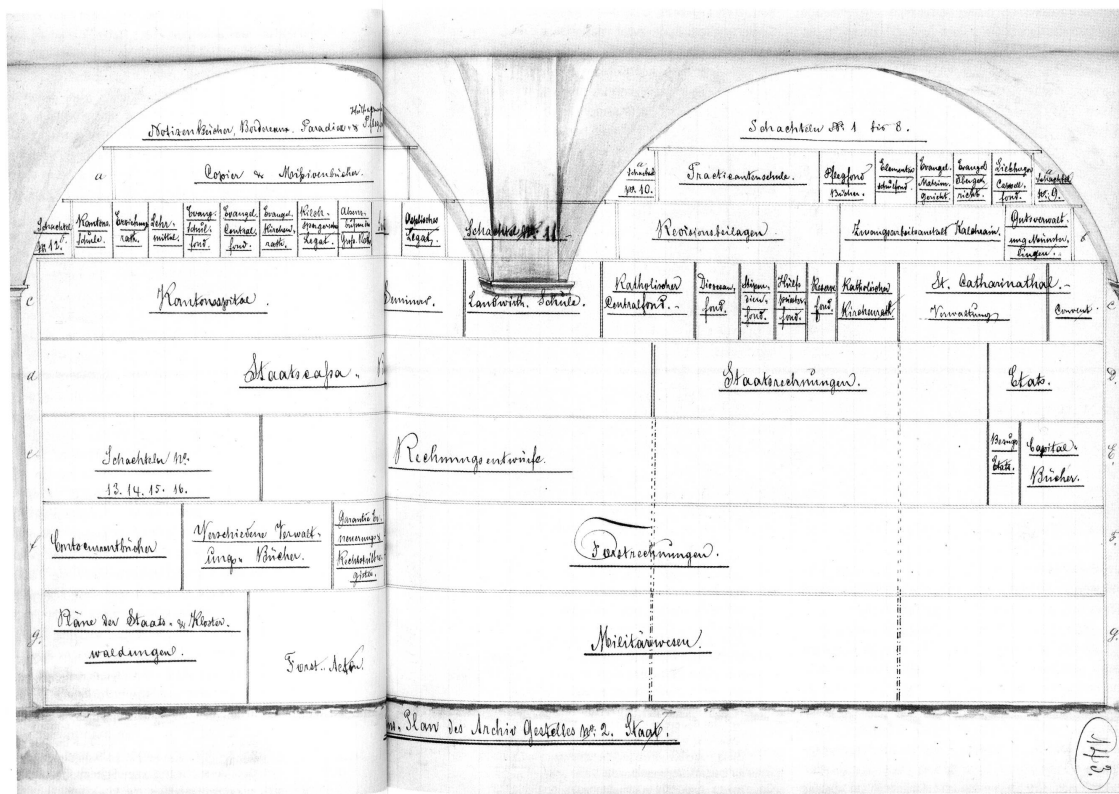 Notizenbücher, Bordereaux- Paradies- &
Schachteln No 1 bis 8.
a
Copier & Missivenbücher.
a
Schachtel
No. 10.
Practicantenschule.
Pflegfond
Bücher.
Elementar
schulfond.
Evangel.
Matrim.
Gericht.
Evangel.
Oberge-
richt.
Liebinger
Capell.
fond.
Schachtel
No. 9.
Schachtel
No. 12.
Kantons.
Schule.
Erziehungs
rath.
Lehr-
mittel.
Evang.
Schul-
fond.
Evangel.
Central-
fond.
Evangel.
Kirchen-
rath.
Legat.
Legat.
Schachtel No. 11.
Revisionsbeilagen.
Zwangsarbeitsanstalt Kalchrain.
Gutsverwalt-
ung Münster-
lingen.
b
c
Kantonsspital.
Seminar.
Landwirth. Schule.
Katholischer
Centralfond.-
Diocesan-
fond.
Stipen-
dien-
fond.
Hülfs
priester
fond.
Reserve
fond.
Katholischer
Kirchenrath
St. Catharinathal.-
Verwaltung
Convent.
c
d
Staatscassa-
Staatsrechnungen.
Etats.
D.
e
Schachteln No.
13. 14. 15. 16.
Rechnungsentwürfe.
Bezugs
Etats.
Capital-
Bücher.
E.
f
Contocurrentbücher
Verschiedene Verwalt-
ungs- Bücher.
Garantie Er-
neuerungs &
gister.
Forstrechnungen.
F.
g.
Pläne der Staats- & Kloster-
waldungen.
Forst-Acten.
Militärwesen.
g.
ns-Plan des Archiv Gestelles No. 2. Staat.
143.